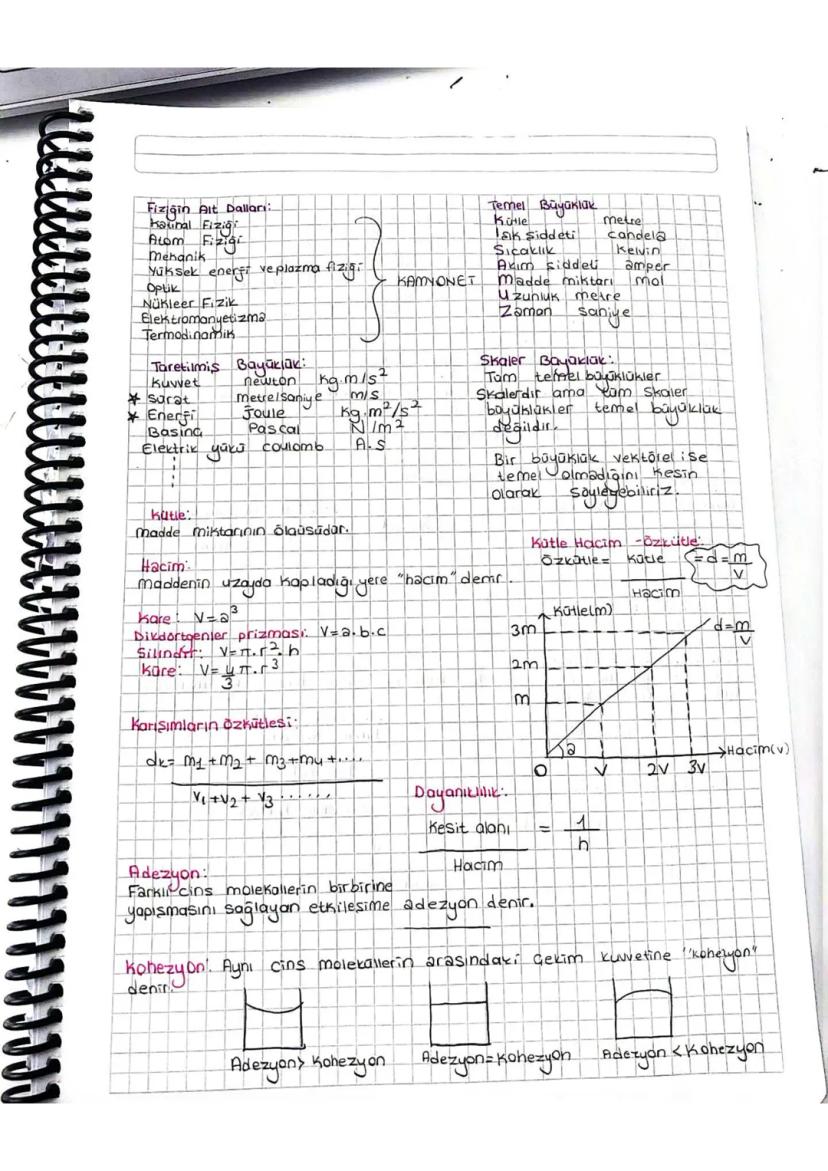 Fiziğin Alt Dalları:
Katıhal Fiziği
Atom Fiziği
Mekanik
Yüksek enerji ve plazma fiziği
Optik
Nükleer Fizik
Elektromanyetizma
Termodinamik
KAMYONET
Temel Büyüklük
Kütle metre
Işık şiddeti candela
Sıcaklık Kelvin
Akım şiddeti amper
Madde miktarı mol
Uzunluk metre
Zaman saniye
Türetilmiş Büyüklük:
Kuvvet newton kg.m/s²
* Sürat metre/saniye m/s
* Enerji Joule kg.m²/s²
Basınç Pascal N/m²
Elektrik yükü coulomb A.s
Skaler Büyüklük:
Tüm temel büyüklükler
Skalerdir ama tüm skaler
büyüklükler temel büyüklük
değildir.
Bir büyüklük vektörel ise
temel olmadığını kesin
olarak söyleyebiliriz.
Kütle:
Madde miktarının ölçüsüdür.
Hacim:
Maddenin uzayda kapladığı yere "hacim" denir.
Kare: V=a³
Dikdörtgenler prizması: V=a.b.c
Silindir: V=π.r².h
Küre: V=4/3 π.r³
Kütle Hacim - Özkütle:
Özkütle= Kütle = d = m
Hacim V
Kütle(m)
3m
d=m/V
2m
m
a
Hacim(v)
O V 2V 3V
Karışımların özkütlesi:
dk= m1+m2+m3+m4+....
V1+V2+V3......
Dayanıklılık:
Kesit alanı = 1
Hacim h
Adezyon:
Farklı cins moleküllerin birbirine
yapışmasını sağlayan etkileşime adezyon denir.
Kohezyon: Aynı cins moleküllerin arasındaki çekim kuvvetine "kohezyon"
denir.
Adezyon> Kohezyon Adezyon=Kohezyon Adezyon < Kohezyon